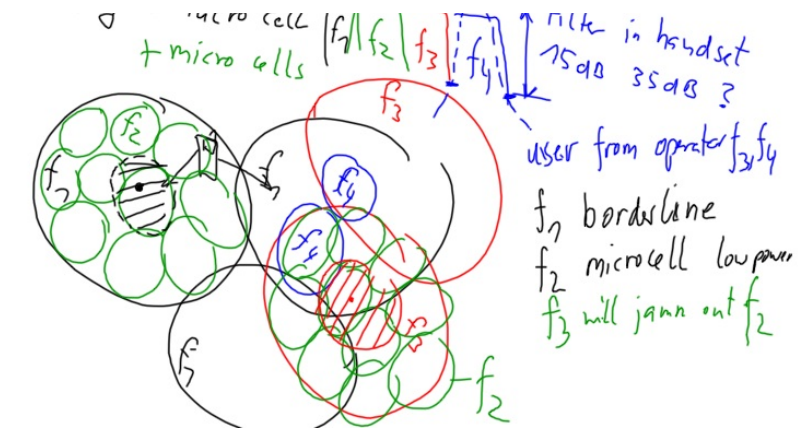 cell
+ micro cells
f1 f2 f3 f4
filter in handset
15dB 35dB ?
user from operator f3, f4
f1 borderline
f2 microcell low power
f3 will jamn out f2
f3
f2
f1
f1
f4
f4
f3
f1
f2